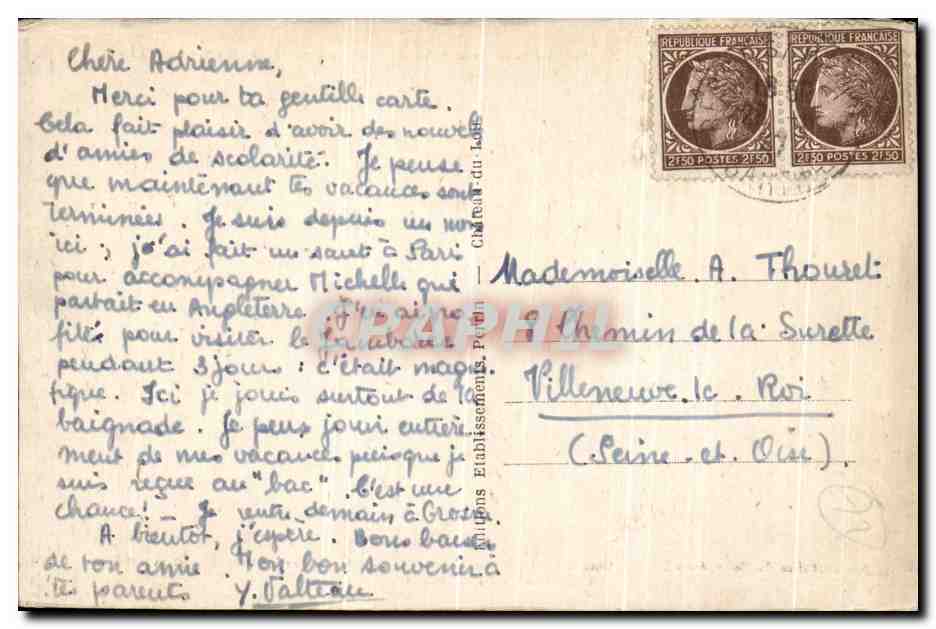 Chère Adrienne,
Merci pour ta gentille carte.
Cela fait plaisir d'avoir des nouvelles
d'amies de scolarité. Je pense
que maintenant tes vacances sont
terminées. Je suis depuis un mois
ici; j'ai fait un saut à Paris
pour accompagner Michelle qui
partait en Angleterre. J'en ai pro
fité pour visiter le
pendant 3 jours : c'était magni
fique. Ici je jouis surtout de la
baignade. Je peux jouir entière
ment de mes vacances puisque je
suis reçue au "bac". C'est une
chance! - Je rentre demain à
A bientôt, j'espère. Bons baisers
de ton amie. Mon bon souvenir à
tes parents Y. Valteau
Editions Etablissements Perrin — Château-du-Loir
REPUBLIQUE FRANÇAISE
2F50 POSTES 2F50
REPUBLIQUE FRANÇAISE
2F50 POSTES 2F50
Mademoiselle A. Thouret
9 Chemin de la Surette
Villeneuve. le. Roi
(Seine et Oise).
CRAPHIL